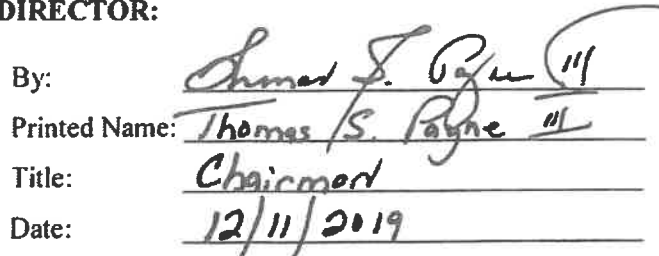 DIRECTOR:
By: Thomas S. Payne III
Printed Name: Thomas S. Payne III
Title: Chairman
Date: 12/11/2019